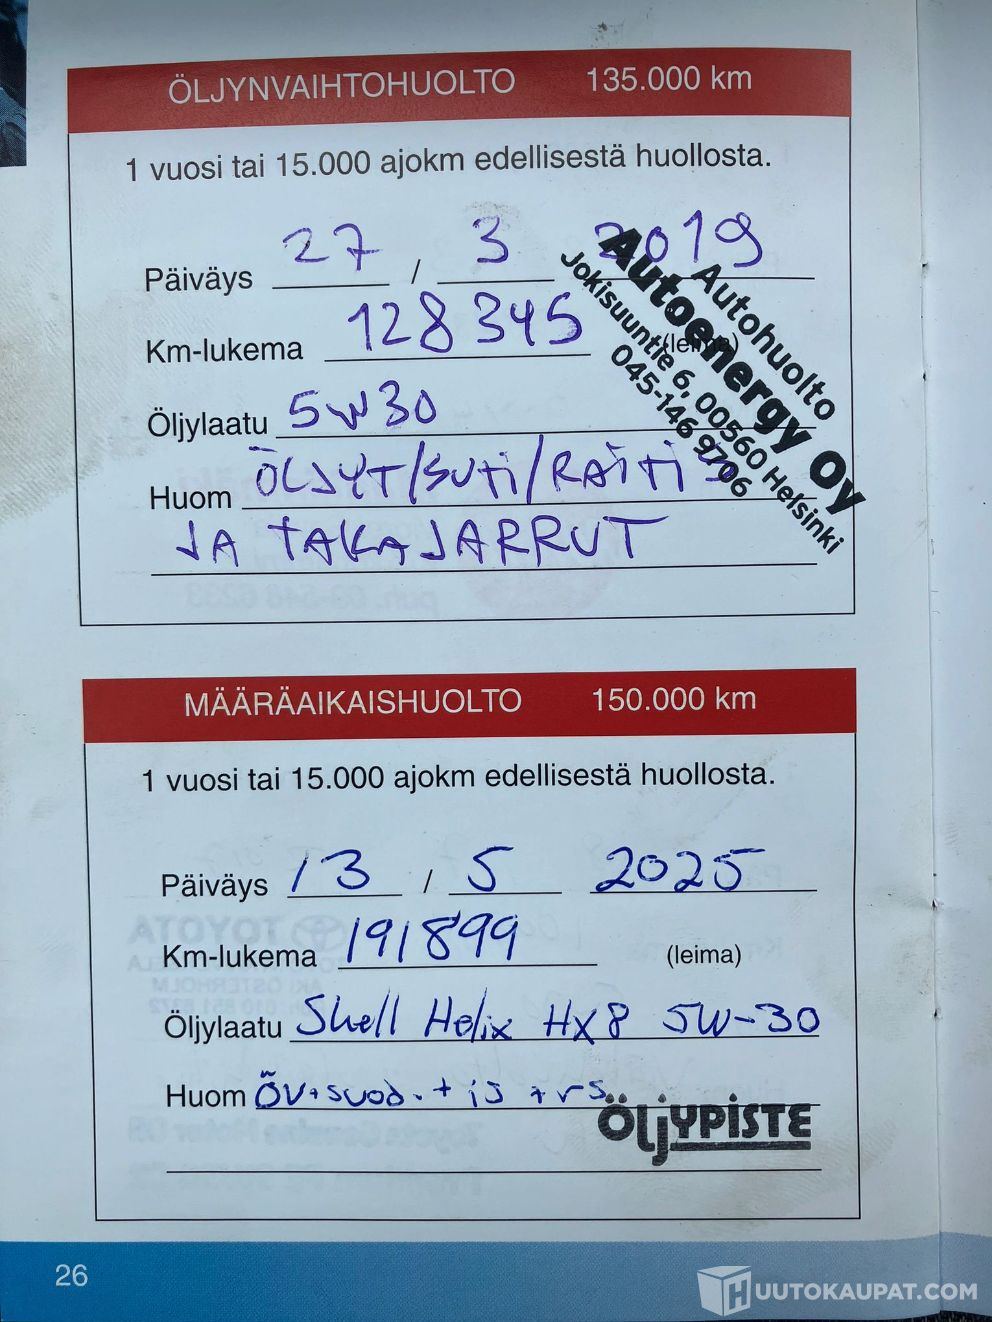 ÖLJYNVAIHTOHUOLTO 135.000 km
1 vuosi tai 15.000 ajokm edellisestä huollosta.
Päiväys 27 / 3 2019
Km-lukema 128345 (leima)
Öljylaatu 5W30
Huom ÖLJYT/SUTI/RAITIS
JA TAKAJARRUT
Autohuolto
Autoenergy Oy
Jokisuuntie 6, 00560 Helsinki
045-146 9706
MÄÄRÄAIKAISHUOLTO 150.000 km
1 vuosi tai 15.000 ajokm edellisestä huollosta.
Päiväys 13 / 5 2025
Km-lukema 191899 (leima)
Öljylaatu Shell Helix HX8 5W-30
Huom ÖV+suod.+is+rs
ÖLJYPISTE
26
HUUTOKAUPAT.COM